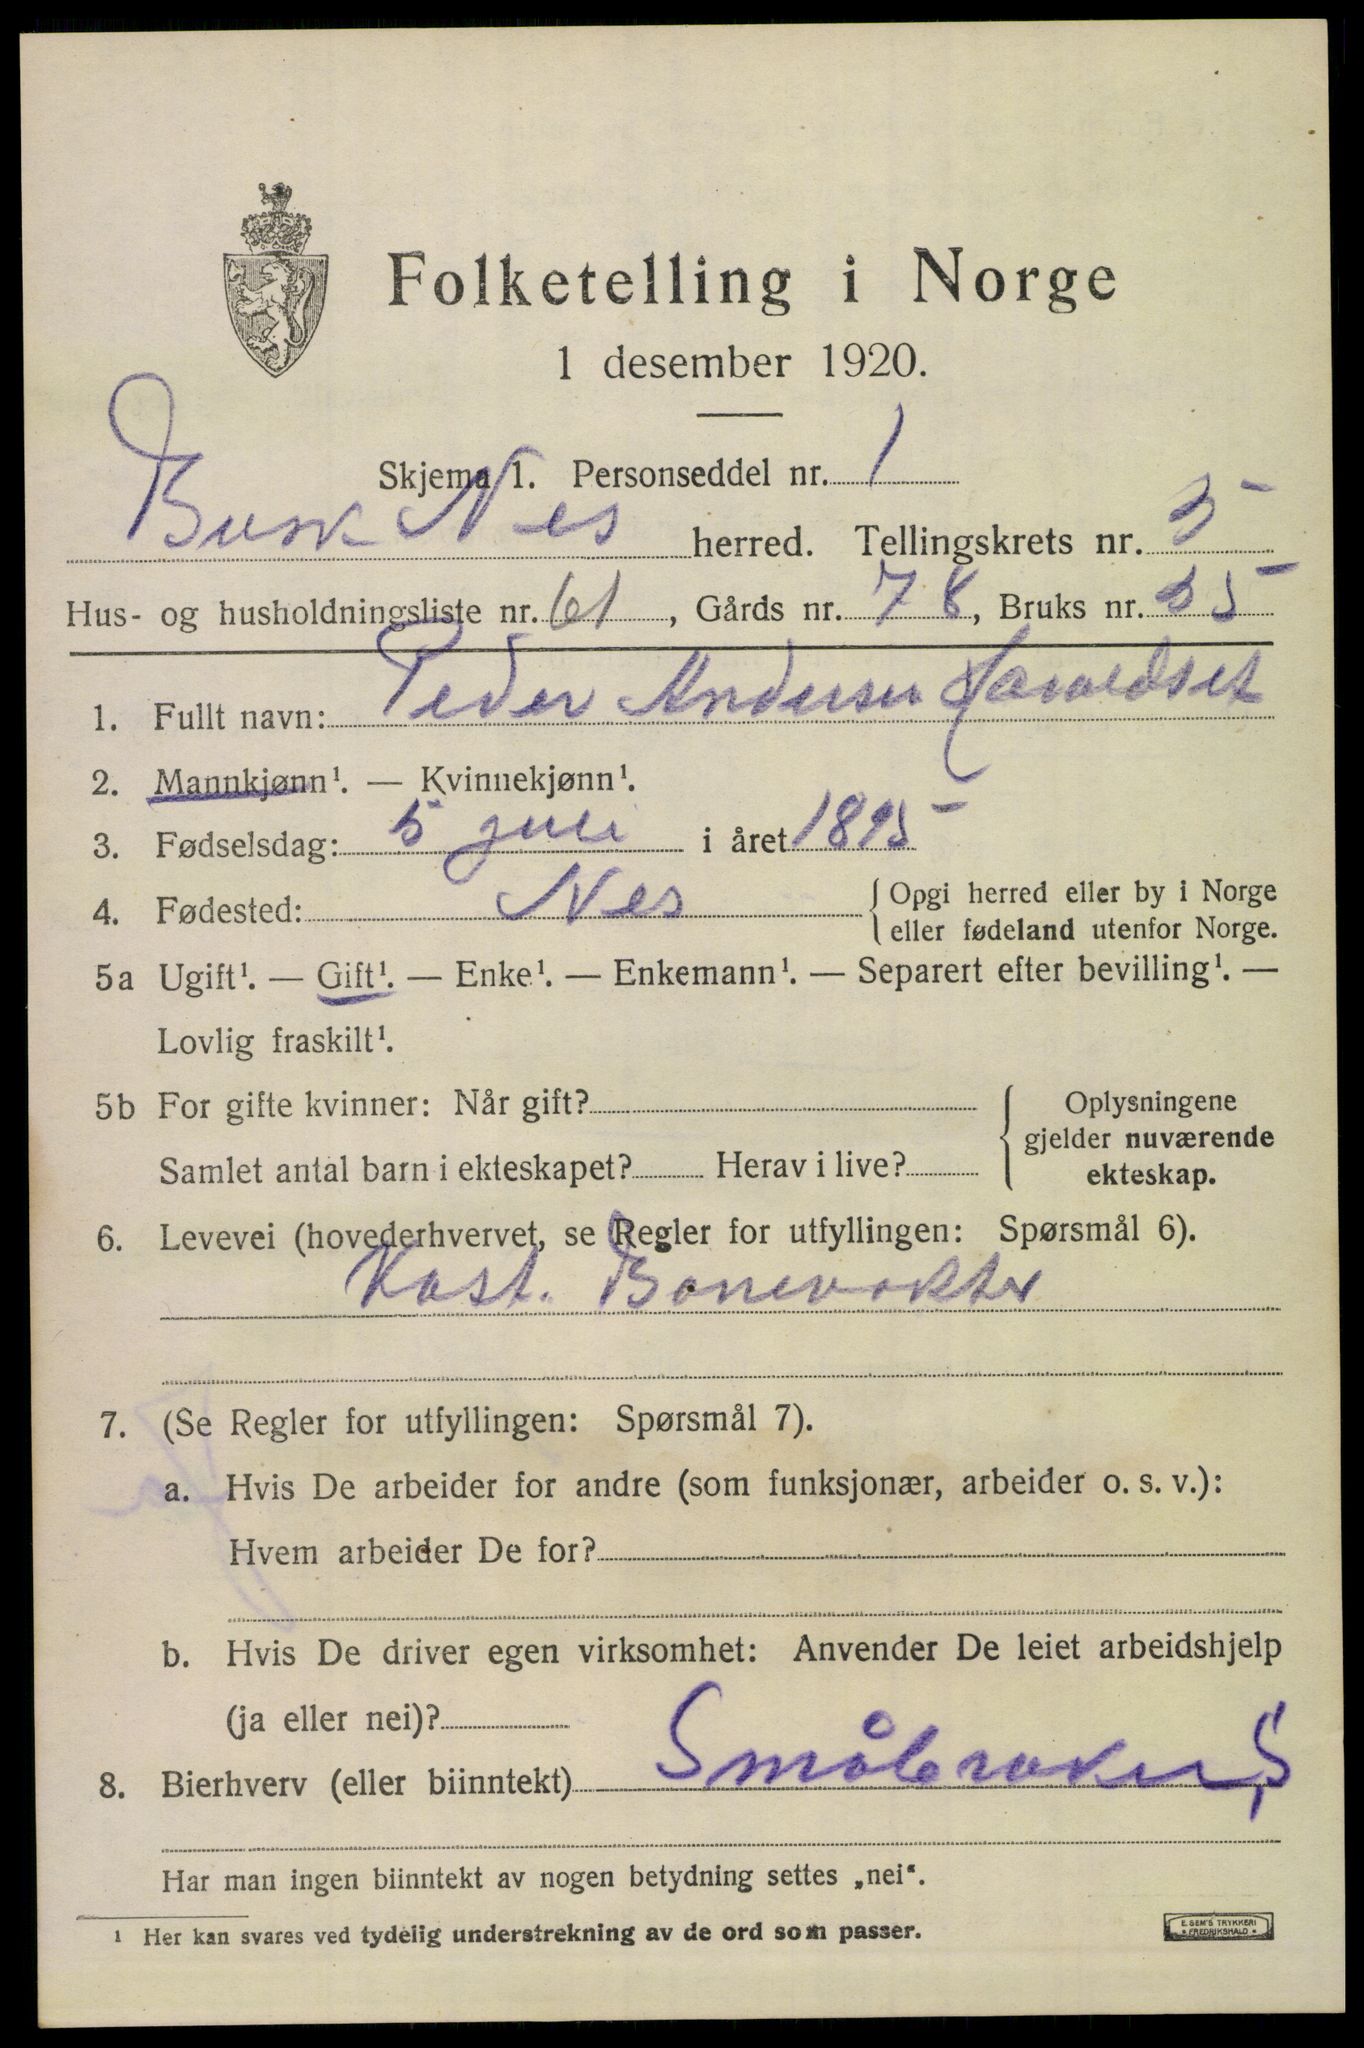 Folketelling i Norge
1 desember 1920.
Skjema 1. Personseddel nr. 1
Busk Nes herred. Tellingskrets nr. 5
Hus- og husholdningsliste nr. 61, Gårds nr. 78, Bruks nr. 35
1. Fullt navn: Peder Andersen
2. Mannkjønn¹. — Kvinnekjønn¹.
3. Fødselsdag: 5 juli i året 1895
4. Fødested: Nes { Opgi herred eller by i Norge
eller fødeland utenfor Norge.
5a Ugift¹. — Gift¹. — Enke¹. — Enkemann¹. — Separert efter bevilling¹. —
Lovlig fraskilt¹.
5b For gifte kvinner: Når gift? { Oplysningene
gjelder nuværende
Samlet antal barn i ekteskapet? Herav i live? ekteskap.
6. Levevei (hovederhvervet, se Regler for utfyllingen: Spørsmål 6).
Kast. Banevokter
7. (Se Regler for utfyllingen: Spørsmål 7).
a. Hvis De arbeider for andre (som funksjonær, arbeider o. s. v.):
Hvem arbeider De for?
b. Hvis De driver egen virksomhet: Anvender De leiet arbeidshjelp
(ja eller nei)?
8. Bierhverv (eller biinntekt) Småbruker, S
Har man ingen biinntekt av nogen betydning settes „nei“.
¹ Her kan svares ved tydelig understrekning av de ord som passer.
E. SEM'S TRYKKERI
FREDRIKSHALD